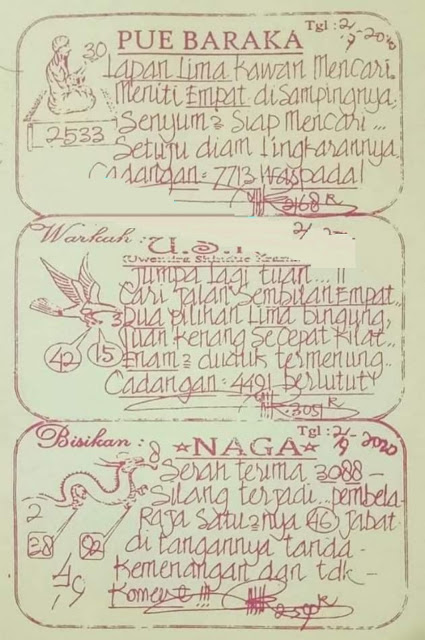 PUE BARAKA
Tgl : 2/9-2020
30
2533
Lapan Lima kawan Mencari.
Meniti Empat disampingnya,
Senyum² Siap Mencari...
Setuju diam Lingkarannya
Cadangan = 7713 Waspada!
2168 R
Warkah :
U.S.I
2/
Jumpa lagi tuan.... !!
Cari jalan Sembilan Empat..
Dua pilihan Lima bingung,
Tuan kenang secepat kilat...
Enam² duduk termenung..
Cadangan : 4491 berlutut
3
42
15
3051 R
Bisikan :
☆NAGA☆
Tgl : 2/9-2020
8
Serah terima 3088 -
Silang terjadi.. pembela-
Raja Satu²nya 46 jabat
di tangannya tanda -
kemenangan dan tdk -
Komeng !!!
2
28
92